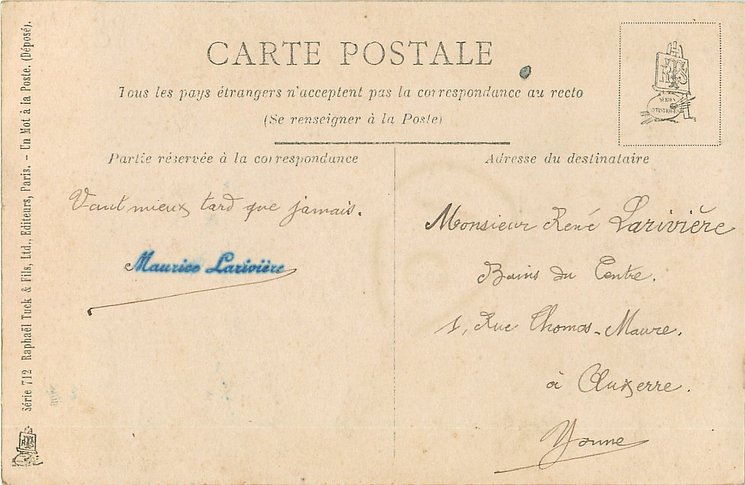 CARTE POSTALE
Tous les pays étrangers n'acceptent pas la correspondance au recto
(Se renseigner à la Poste)
Partie réservée à la correspondance
Vaut mieux tard que jamais.
Maurice Larivière
Adresse du destinataire
Monsieur René Larivière
Bains du Centre.
1, Rue Thomas-Maure.
à Auxerre.
Yonne
Série 712 Raphaël Tuck & Fils, Ltd., Editeurs, Paris. - Un Mot à la Poste. (Déposé).